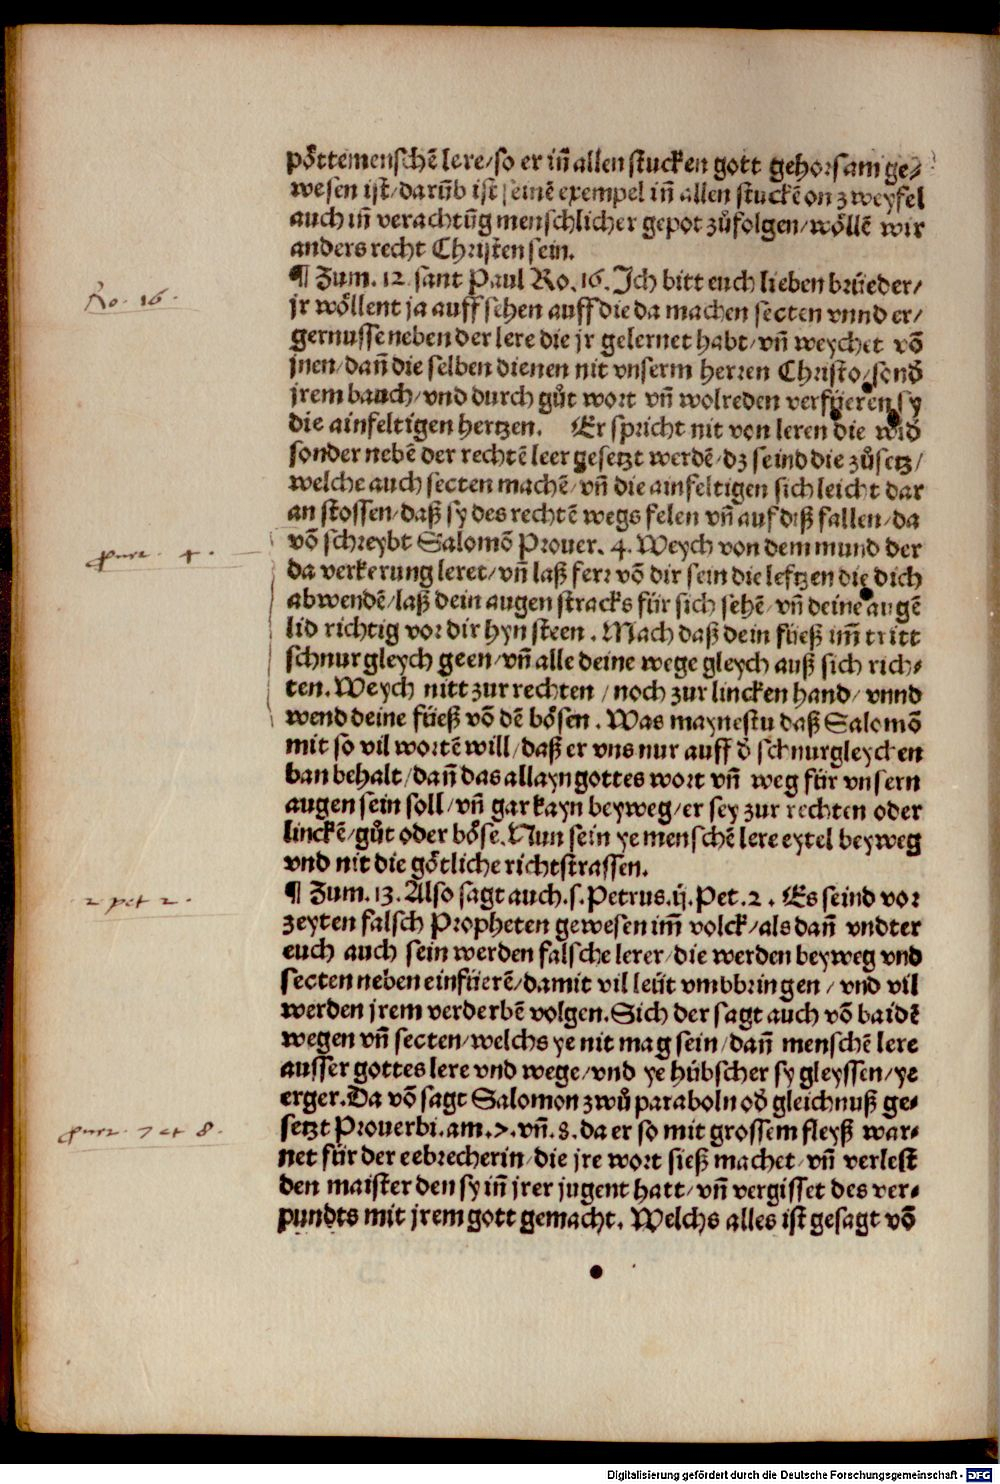 pöttemenschē lere/so er iñ allen stucken gott gehorsam ge⸗
wesen ist/darūb ist seinē exempel iñ allen stuckē on zweyfel
auch iñ verachtūg menschlicher gepot zůfolgen/wöllē wir
anders recht Christen sein.
¶ Zum. 12 sant Paul Ro. 16. Ich bitt euch lieben brüeder/
jr wöllent ja auff sehen auff die da machen secten vnnd er/
gernusse neben der lere die jr gelernet habt/vñ weychet võ
jnen/dañ die selben dienen nit vnserm herren Christo/sond̕
jrem bauch/vnd durch gůt wort vñ wolreden verfüeren sy
die ainfeltigen hertzen. Er spricht nit von leren die wid̕
sonder nebē der rechtē leer gesetzt werdē/dz seind die zůsetz/
welche auch secten machē/vñ die ainfeltigen sich leicht dar
an stossen/daß sy des rechtē wegs felen vñ auf diß fallen/da
võ schreybt Salomõ Prouer. 4. Weych von dem mund der
da verkerung leret/vñ laß ferr võ dir sein die leftzen die dich
abwendē/laß dein augen stracks für sich sehē/vñ deine augē
lid richtig vor dir hyn steen. Mach daß dein füeß im̃ tritt
schnurgleych geen/vñ alle deine wege gleych auß sich rich⸗
ten. Weych nitt zur rechten / noch zur lincken hand/ vnnd
wend deine füeß võ dē bösen. Was maynestu daß Salomõ
mit so vil wortē will/daß er vns nur auff d̕ schnurgleychen
ban behalt/dañ das allayn gottes wort vñ weg für vnsern
augen sein soll/vñ gar kayn beyweg/er sey zur rechten oder
linckē/gůt oder böse. Nun sein ye menschē lere eytel beyweg
vnd nit die götliche richtstrassen.
¶ Zum. 13. Also sagt auch .s. Petrus. ij. Pet. 2. Es seind vor
zeyten falsch Propheten gewesen im̃ volck/als dañ vndter
euch auch sein werden falsche lerer/die werden beyweg vnd
secten neben einfüerē/damit vil leüt vmbbringen/ vnd vil
werden jrem verderbē volgen. Sich der sagt auch võ baidē
wegen vñ secten/welchs ye nit mag sein/dañ menschē lere
ausser gottes lere vnd wege/vnd ye hübscher sy gleyssen/ye
erger. Da võ sagt Salomon zwů paraboln od̕ gleichnuß ge⸗
setzt Prouerbi. am. 7. vñ. 8. da er so mit grossem fleyß war⸗
net für der eebrecherin/die jre wort sieß machet/vñ verlest
den maister den sy iñ jrer jugent hatt/vñ vergisset des ver⸗
pundts mit jrem gott gemacht. Welchs alles ist gesagt võ
Ro. 16.
prouer. 4.
2 pet 2.
prouer. 7 et 8.
Digitalisierung gefördert durch die Deutsche Forschungsgemeinschaft - DFG